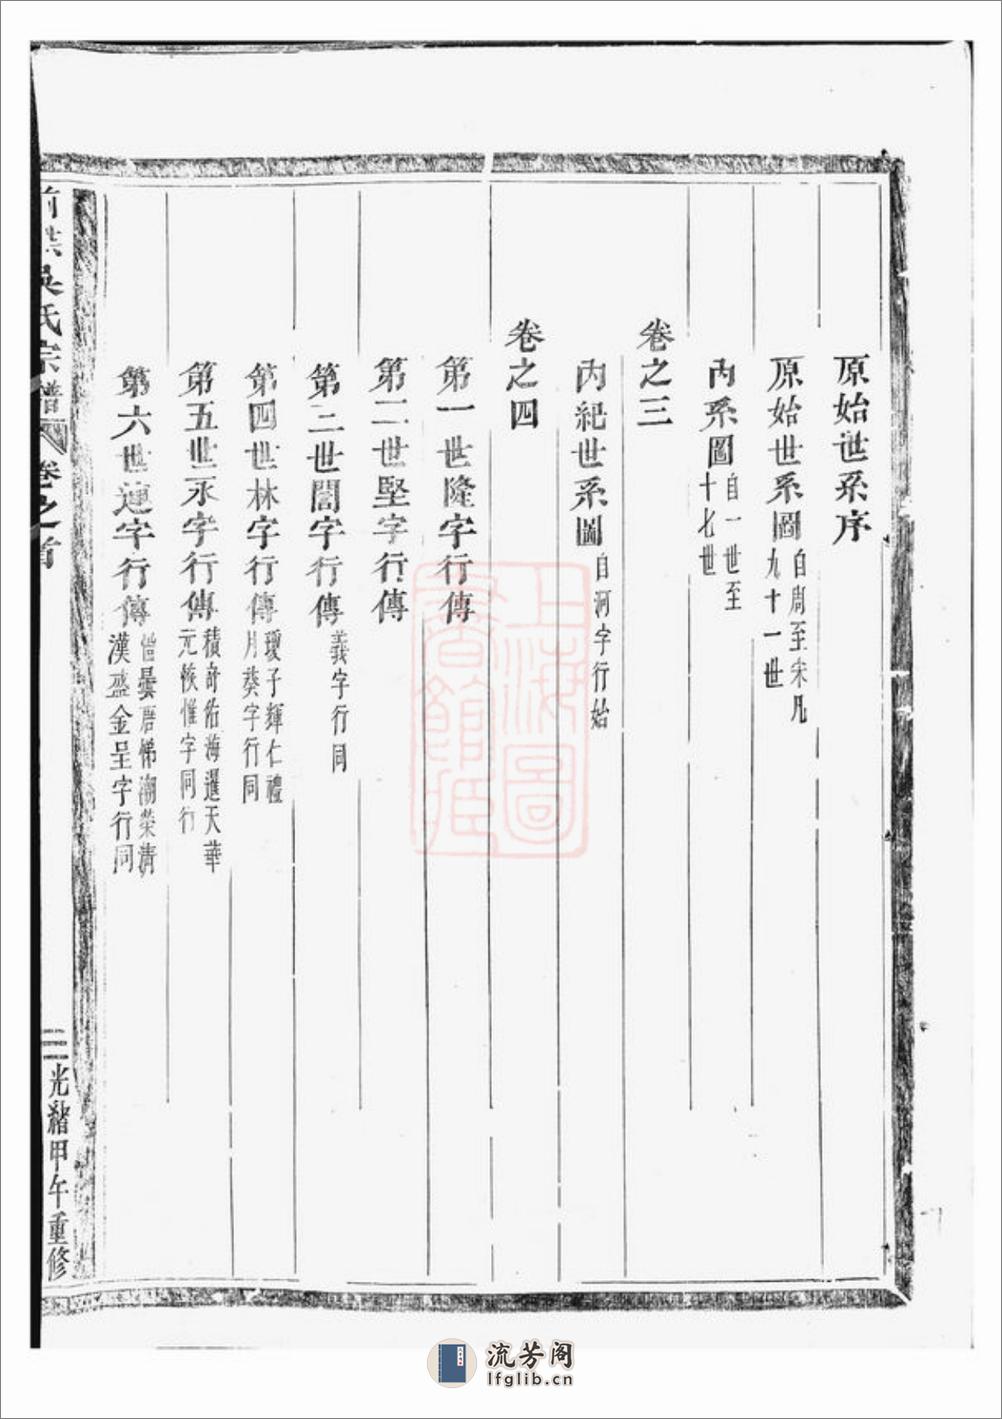 原始世系序
原始世系圖自周至宋凡九十一世
內系圖自一世至十七世
卷之三
內紀世系圖自河字行始
卷之四
第一世隆字行傳
第二世堅字行傳
第三世誾字行傳義字行同
第四世林字行傳瓊子輝仁禮月葵字行同
第五世永字行傳積奇佑海暹天華元惟字同行
第六世連字行傳曇唐悌潮榮清漢盛金呈字行同
前吳氏宗譜
卷之首
三
光緒甲午重修
上海圖書館藏
流芳阁
lfglib.cn